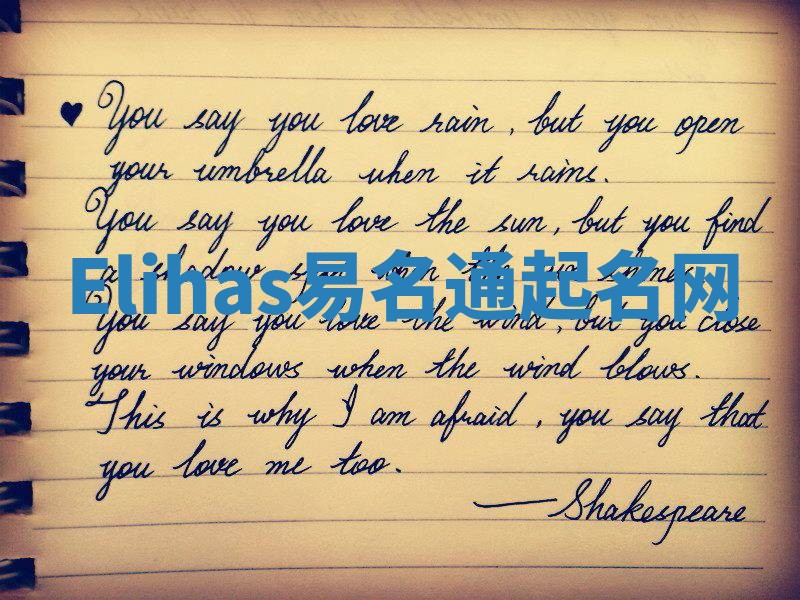 ♥ You say you love rain, but you open
your umbrella when it rains.
You say you love the sun, but you find
a shadow spot when the sun shines.
Elihas易名通起名网
You say you love the wind, but you close
your windows when the wind blows.
This is why I am afraid, you say that
you love me too.
—Shakespeare